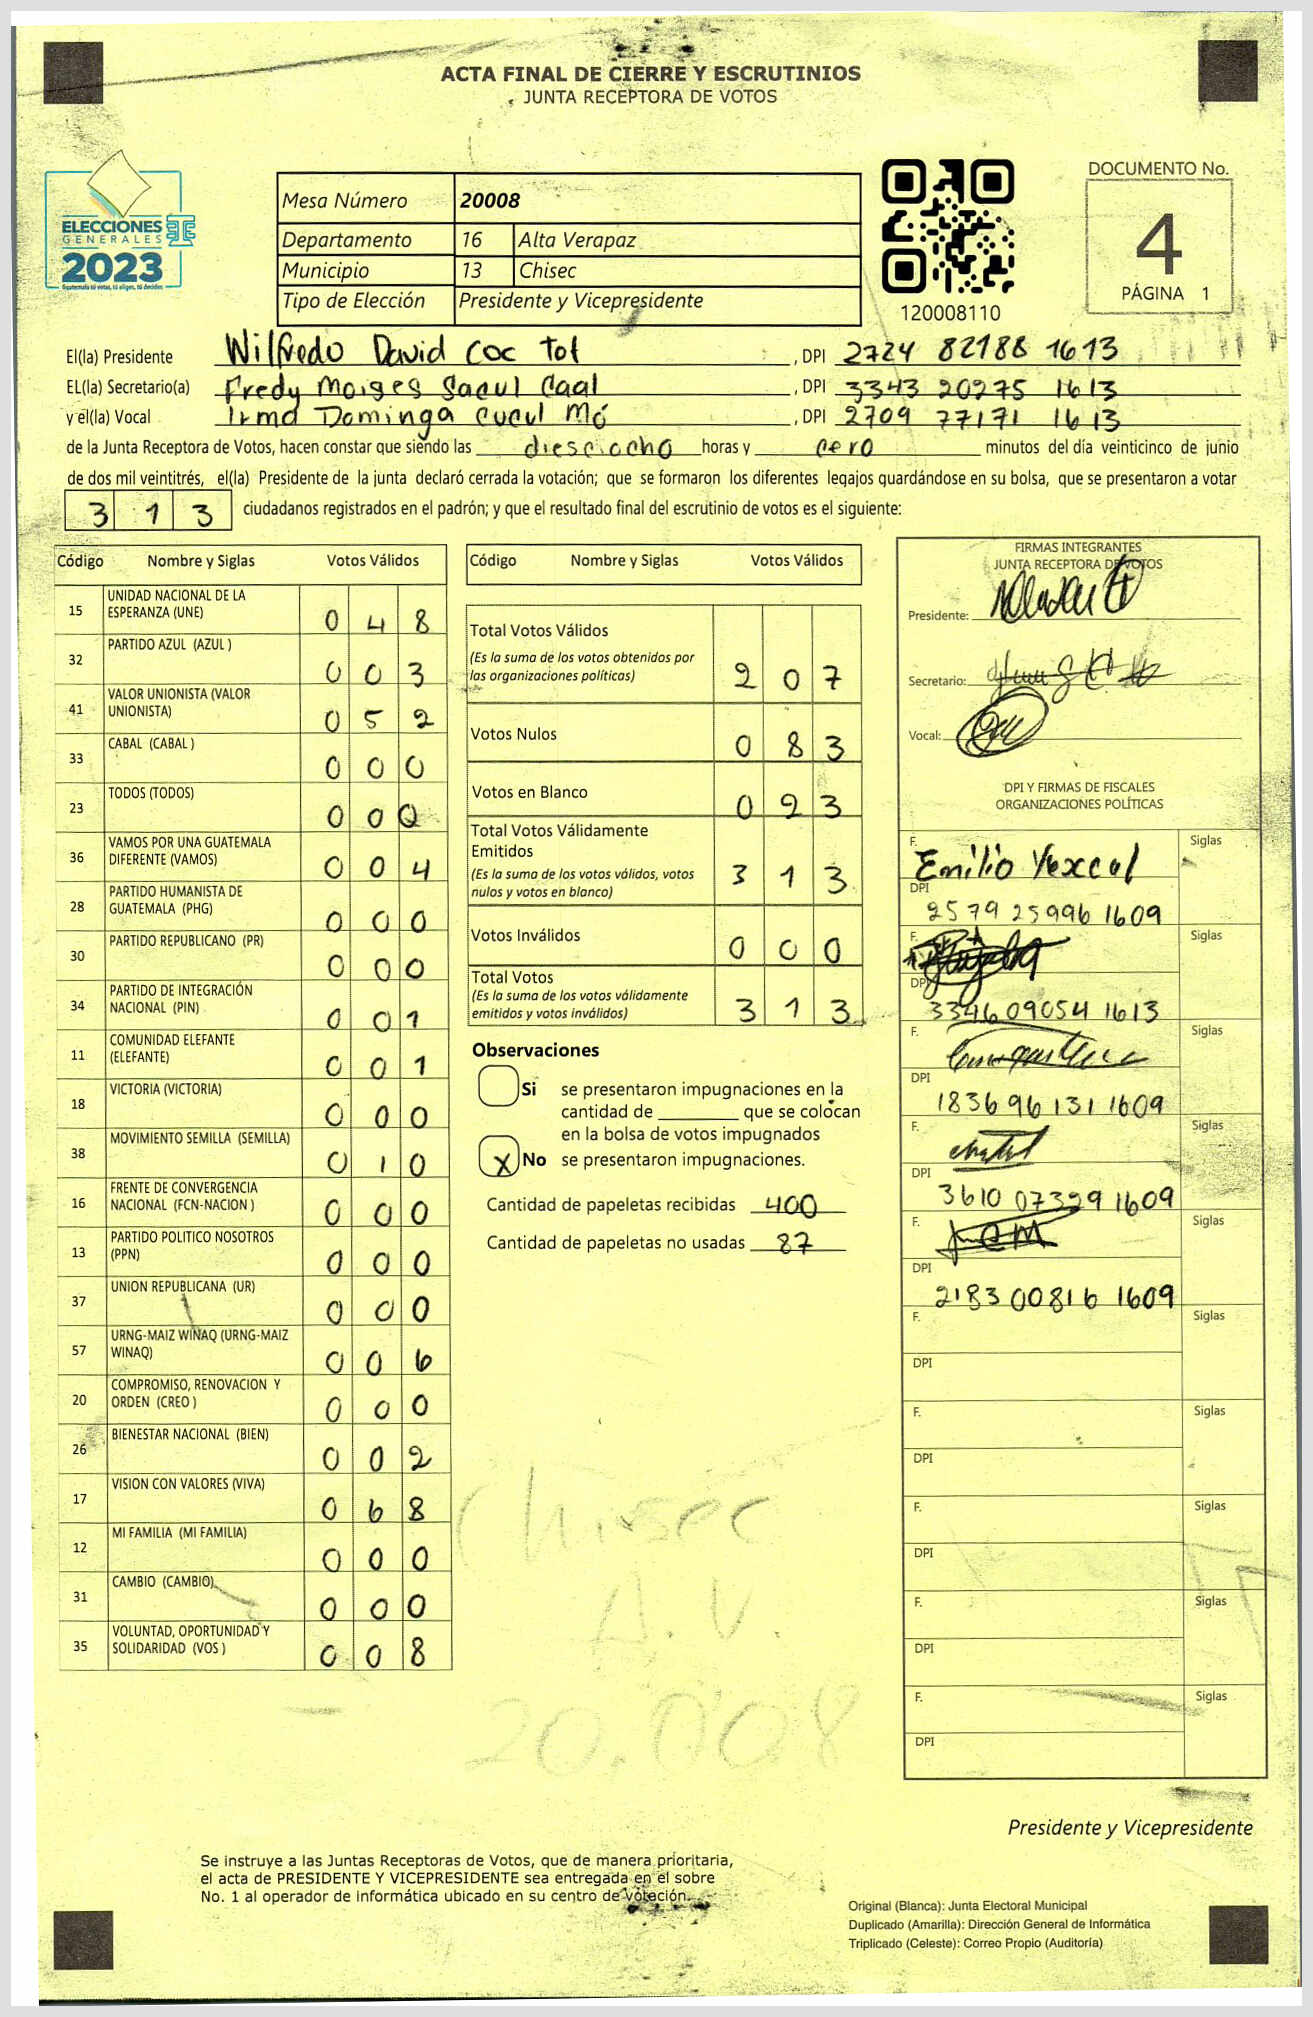 ACTA FINAL DE CIERRE Y ESCRUTINIOS
JUNTA RECEPTORA DE VOTOS
ELECCIONES
GENERALES
2023
Guatemala tú votas, tú eliges, tú decides
Mesa Número 20008
Departamento 16 Alta Verapaz
Municipio 13 Chisec
Tipo de Elección Presidente y Vicepresidente
120008110
DOCUMENTO No.
4
PÁGINA 1
El(la) Presidente Wilfredo David Coc Tot , DPI 2724 82188 1613
EL(la) Secretario(a) Fredy Moises Sacul Caal , DPI 3343 20275 1613
y el(la) Vocal Irma Dominga Cucul Mó , DPI 2709 77171 1613
de la Junta Receptora de Votos, hacen constar que siendo las diesciocho horas y cero minutos del día veinticinco de junio
de dos mil veintitrés, el(la) Presidente de la junta declaró cerrada la votación; que se formaron los diferentes legajos guardándose en su bolsa, que se presentaron a votar
3 1 3 ciudadanos registrados en el padrón; y que el resultado final del escrutinio de votos es el siguiente:
Código Nombre y Siglas Votos Válidos
15 UNIDAD NACIONAL DE LA
ESPERANZA (UNE) 0 4 8
32 PARTIDO AZUL (AZUL ) 0 0 3
41 VALOR UNIONISTA (VALOR
UNIONISTA) 0 5 2
33 CABAL (CABAL ) 0 0 0
23 TODOS (TODOS) 0 0 0
36 VAMOS POR UNA GUATEMALA
DIFERENTE (VAMOS) 0 0 4
28 PARTIDO HUMANISTA DE
GUATEMALA (PHG) 0 0 0
30 PARTIDO REPUBLICANO (PR) 0 0 0
34 PARTIDO DE INTEGRACIÓN
NACIONAL (PIN) 0 0 1
11 COMUNIDAD ELEFANTE
(ELEFANTE) 0 0 1
18 VICTORIA (VICTORIA) 0 0 0
38 MOVIMIENTO SEMILLA (SEMILLA) 0 1 0
16 FRENTE DE CONVERGENCIA
NACIONAL (FCN-NACION ) 0 0 0
13 PARTIDO POLITICO NOSOTROS
(PPN) 0 0 0
37 UNION REPUBLICANA (UR) 0 0 0
57 URNG-MAIZ WINAQ (URNG-MAIZ
WINAQ) 0 0 6
20 COMPROMISO, RENOVACION Y
ORDEN (CREO ) 0 0 0
26 BIENESTAR NACIONAL (BIEN) 0 0 2
17 VISION CON VALORES (VIVA) 0 6 8
12 MI FAMILIA (MI FAMILIA) 0 0 0
31 CAMBIO (CAMBIO) 0 0 0
35 VOLUNTAD, OPORTUNIDAD Y
SOLIDARIDAD (VOS ) 0 0 8
Código Nombre y Siglas Votos Válidos
Total Votos Válidos
(Es la suma de los votos obtenidos por
las organizaciones políticas) 2 0 7
Votos Nulos 0 8 3
Votos en Blanco 0 2 3
Total Votos Válidamente
Emitidos
(Es la suma de los votos válidos, votos
nulos y votos en blanco) 3 1 3
Votos Inválidos 0 0 0
Total Votos
(Es la suma de los votos válidamente
emitidos y votos inválidos) 3 1 3
Observaciones
Si se presentaron impugnaciones en la
cantidad de ________ que se colocan
en la bolsa de votos impugnados
X No se presentaron impugnaciones.
Cantidad de papeletas recibidas 400
Cantidad de papeletas no usadas 87
Chisec
A.V.
20.008
FIRMAS INTEGRANTES
JUNTA RECEPTORA DE VOTOS
Presidente:
Secretario:
Vocal:
DPI Y FIRMAS DE FISCALES
ORGANIZACIONES POLÍTICAS
F. Emilio Yaxcal Siglas
DPI
2579 25996 1609
F. Siglas
DPI
3346 09054 1613
F. Siglas
DPI
1836 96131 1609
F. Siglas
DPI
3610 07329 1609
F. Siglas
DPI
2183 00816 1609
F. Siglas
DPI
F. Siglas
DPI
F. Siglas
DPI
F. Siglas
DPI
F. Siglas
DPI
Presidente y Vicepresidente
Se instruye a las Juntas Receptoras de Votos, que de manera prioritaria,
el acta de PRESIDENTE Y VICEPRESIDENTE sea entregada en el sobre
No. 1 al operador de informática ubicado en su centro de votación.
Original (Blanca): Junta Electoral Municipal
Duplicado (Amarilla): Dirección General de Informática
Triplicado (Celeste): Correo Propio (Auditoría)